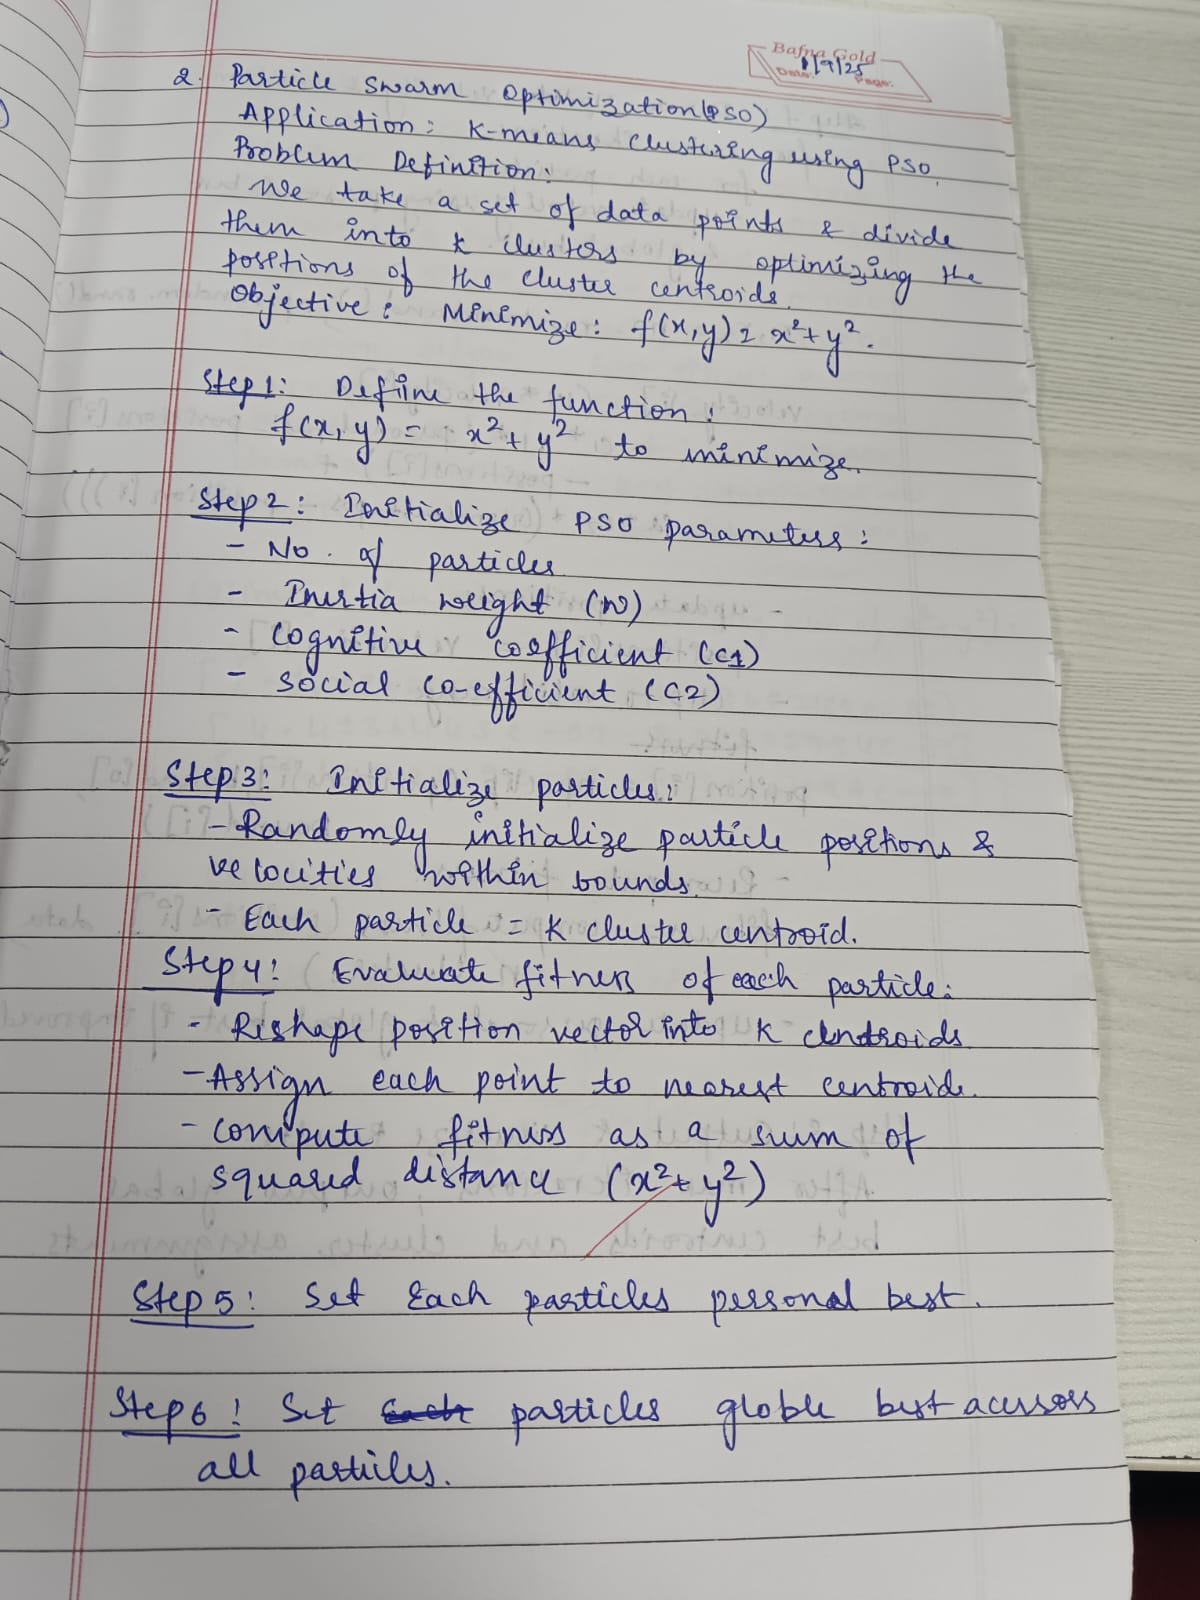 Bafna Gold
Date: 1/9/25 Page:
2. Particle Swarm Optimization (PSO)
Application: K-means clustering using PSO.
Problem Definition:
We take a set of data points & divide
them into K clusters by optimizing the
positions of the cluster centroids.
Objective: Minimize: f(x,y) = x²+y².
Step 1: Define the function:
f(x,y) = x²+y² to minimize.
Step 2: Initialize PSO parameters:
- No. of particles
- Inertia weight (w)
- cognitive coefficient (c1)
- social co-efficient (c2)
Step 3: Initialize particles:
- Randomly initialize particle positions &
velocities within bounds.
- Each particle = K cluster centroid.
Step 4: Evaluate fitness of each particle:
- Reshape position vector into K centroids.
- Assign each point to nearest centroid.
- compute fitness as a sum of
squared distance (x²+y²)
Step 5: Set Each particles personal best.
Step 6: Set particles globle best acsross
all particles.